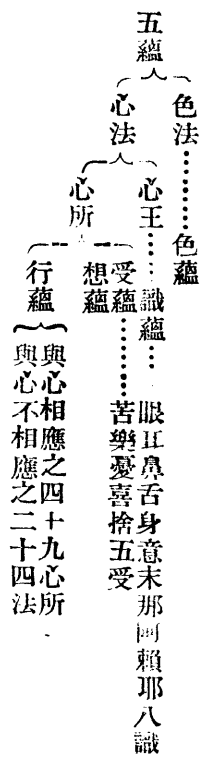 五蘊
色法………色蘊
心法
心王……識蘊……眼耳鼻舌身意末那阿賴耶八識
心所
受蘊………苦樂憂喜捨五受
想蘊
行蘊
與心相應之四十九心所
與心不相應之二十四法